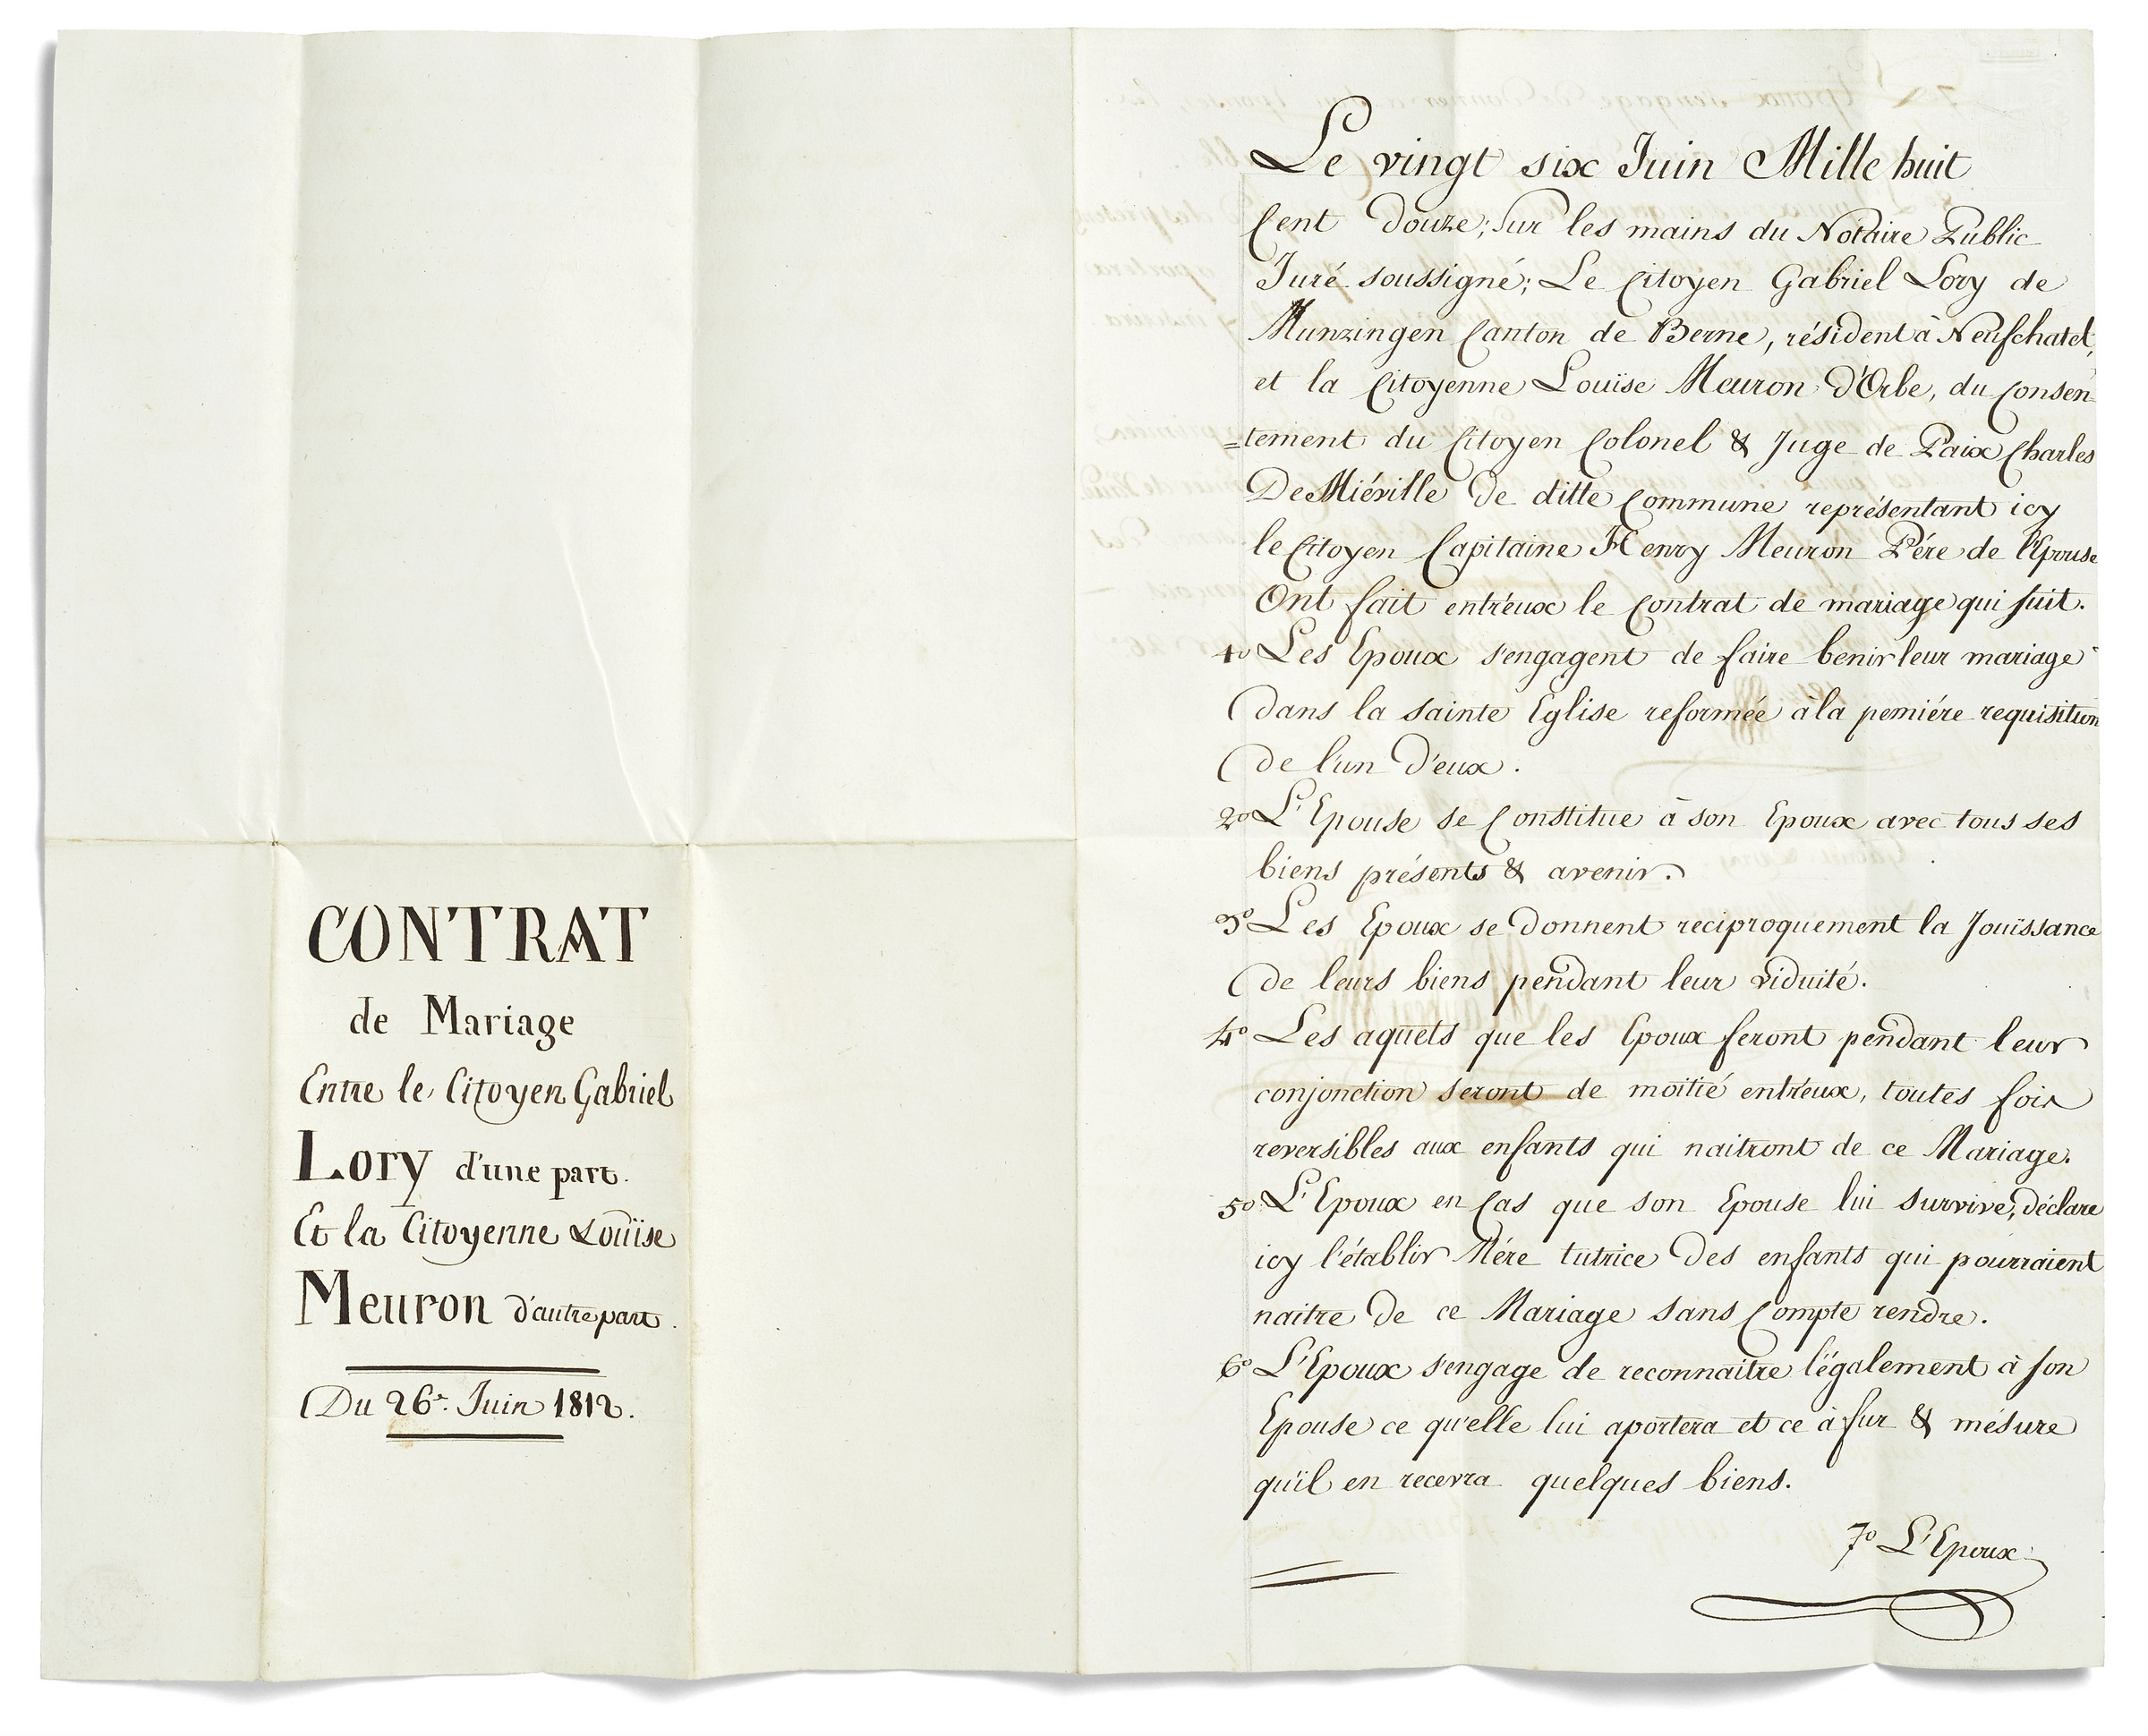 CONTRAT
de Mariage
Entre le Citoyen Gabriel
Lory d'une part.
Et la Citoyenne Louïse
Meuron d'autre part.
Du 26.e Juin 1812.
Le vingt six Juin Mille huit
Cent Douze; Sur les mains du Notaire Public
Juré soussigné; Le Citoyen Gabriel Lory de
Munzingen Canton de Berne, résident à Neufchatel,
et la Citoyenne Louïse Meuron d'Orbe, du Consen
=tement du Citoyen Colonel & Juge de Paix Charles
De Miéville de ditte Commune représentant icy
le Citoyen Capitaine Henry Meuron Pére de l'Epouse
Ont fait entr'eux le Contrat de mariage qui suit.
1o Les Epoux s'engagent de faire benir leur mariage
Dans la sainte Eglise reformée à la pemiére requisition
De l'un D'eux.
2o L'Epouse se Constitue à son Epoux avec tous ses
biens présents & avenir.
3o Les Epoux se Donnent reciproquement la Jouïssance
De leurs biens pendant leur viduité.
4o Les aquets que les Epoux feront pendant leur
conjonction seront de moitié entr'eux, toutes fois
reversibles aux enfants qui naitront de ce Mariage.
5o L'Epoux en Cas que son Epouse lui survive, déclare
icy l'établir Mére tutrice Des enfants qui pourraient
naitre De ce Mariage sans Compte rendre.
6o L'Epoux s'engage de reconnaitre légalement à son
Epouse ce qu'elle lui aportera et ce à fur & mésure
qu'il en recevra quelques biens.
7o L'Epoux